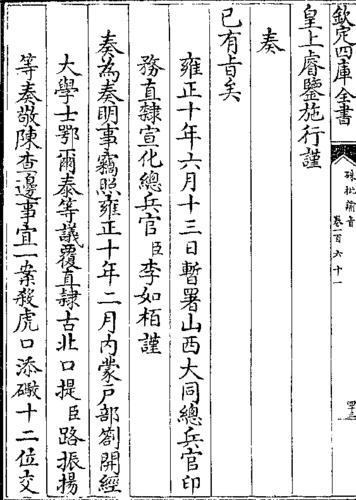 欽定四庫全書
硃批諭旨
卷一百六十一
皇上睿鑒施行謹
奏
已有旨矣
雍正十年六月十三日暫署山西大同總兵官印
務直隸宣化總兵官臣李如栢謹
奏為奏明事竊照雍正十年二月內蒙戶部劄開經
大學士鄂爾泰等議覆直隸古北口提臣路振揚
等奏敬陳查邊事宜一案殺虎口添礮十二位交